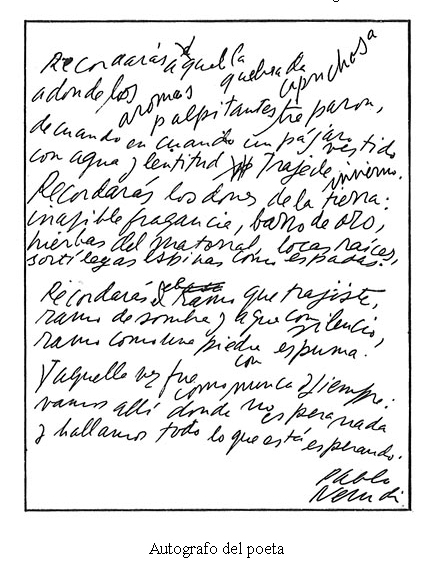 Recordarás aquella quebrada caprichosa
a donde los aromas palpitantes treparon,
de cuando en cuando un pájaro vestido
con agua y lentitud traje de invierno.
Recordarás los dones de la tierra:
irascible fragancia, barro de oro,
hierbas del matorral, locas raíces,
sortílegas espinas como espadas.
Recordarás el ramo que trajiste,
ramo de sombra y agua con silencio,
ramo como una piedra con espuma.
Y aquella vez fue como nunca y siempre:
vamos allí donde no espera nada
y hallamos todo lo que está esperando.
Pablo
Neruda
Autografo del poeta